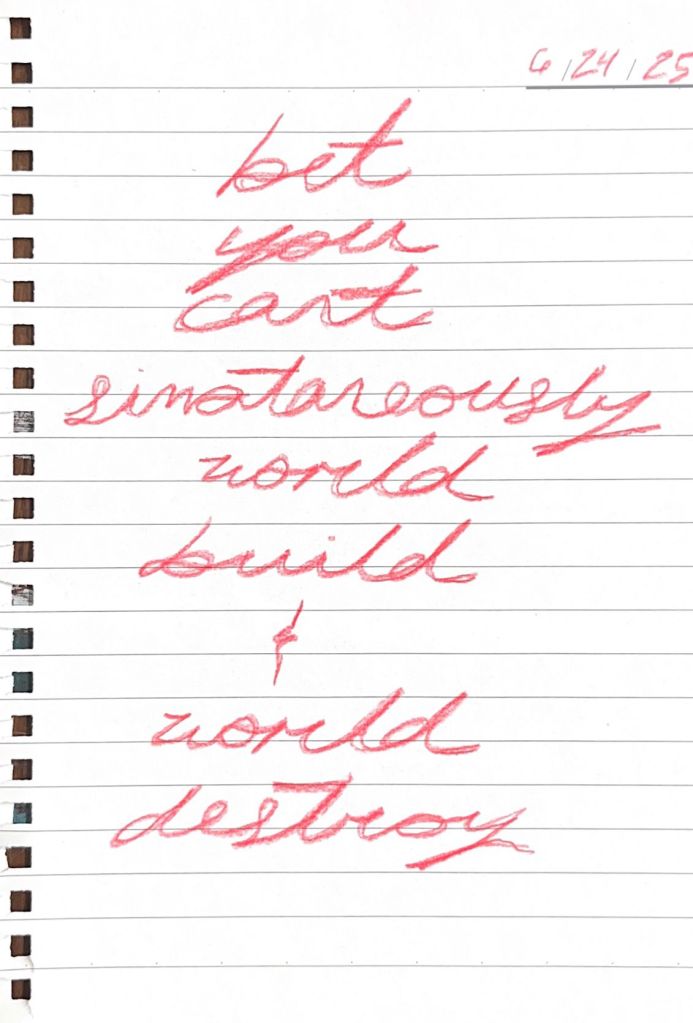 6/24/25
bet
you
cant
sinataneously
world
build
&
world
destroy